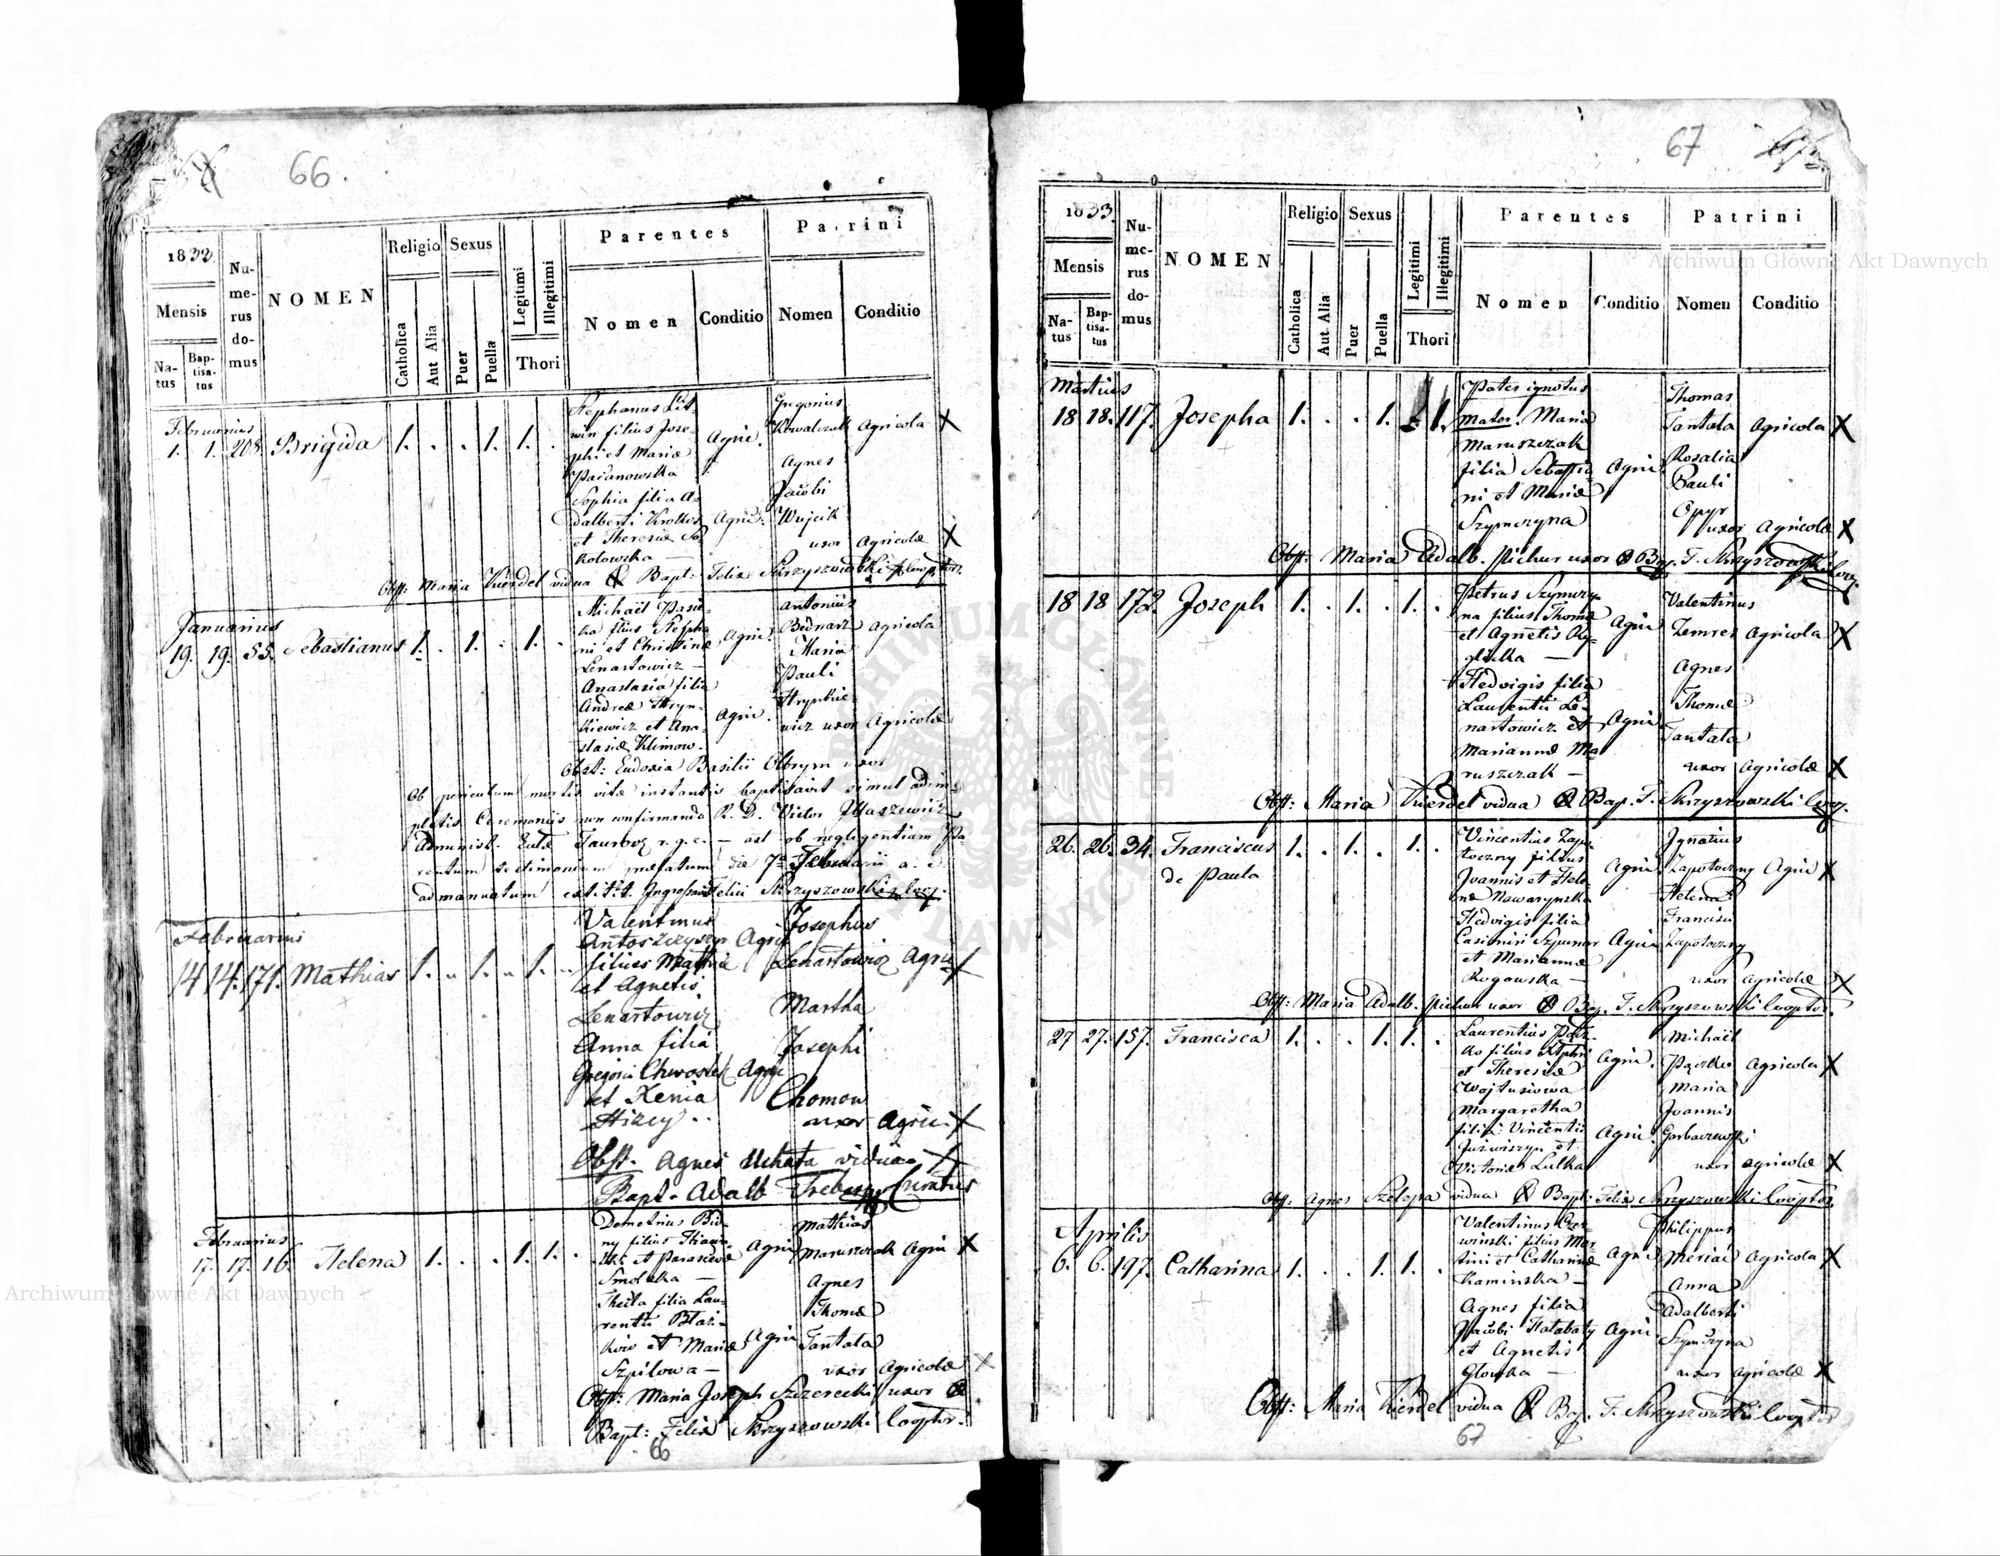 66.
1833.
Mensis
Na-
tus
Bap-
tisa-
tus
Nu-
me-
rus
do-
mus
NOMEN
Religio
Catholica
Aut Alia
Sexus
Puer
Puella
Legitimi
Illegitimi
Thori
Parentes
Nomen
Conditio
Patrini
Nomen
Conditio
Februarius
1. 1. 208. Brigida 1. . . 1. 1. .
Stephanus Lit
win filius Jose-
phi et Mariæ
Pacanowska
Agric.
Sophia filia A-
dalberti Krolkos
et Theresiæ So
kolowska —
Agric.
Gregorius
Kowalczuk Agricola X
Agnes
Jacobi
Wujcik
uxor Agricolæ X
Obst: Maria Kierdel vidua Bapt: Felix Skrzyszowski Cooptor.
Januarius
19. 19. 55. Sebastianus 1. . 1. . 1. .
Michaël Pasie-
ka filius Stepha
ni et Christinæ
Lenartowicz —
Agric.
Anastasia filia
Andreæ Hryn-
kiewicz et Ana-
stasiæ Klimow.
Agric.
Antonius
Bednarz Agricola
Maria
Pauli
Hrynkie-
wicz uxor Agricolæ
Obst: Eudoxia Basilii Olbrym uxor
Ob periculum mortis vitæ instantis baptisavit simul adim-
pletis Ceremoniis non confirmando R. D. Victor Ilaszewicz
Administ. Eccæ Taurov: r. g. c. — ast ob neglegentiam Pa-
rentum testimonium prælatum die 7a Februarii a. c.
admanuatum est. Ingrossavit Felix Skrzyszowski Coop.
Februarius
14 14. 171. Mathias 1. " 1. " 1. "
Valentinus
Antoszczyszyn Agric
filius Mathiæ
et Agnetis
Lenartowicz
Anna filia
Gregorii Chwostek Agric
et Xenia
Hizey . .
Josephus
Lenartowicz Agric X
Martha
Josephi
Chomow
uxor Agric. X
Obst. Agnes Uchata vidua. X
Bapt. Adalb Trebuszny Curatus
Februarius
17. 17. 16. Helena 1. . . 1. 1. .
Demetrius Bid-
ny filius
et Parascevæ
Smolska —
Agric
Thecla filia Lau-
rentii Blaz-
kow et Mariæ
Szpilowa —
Agric
Mathias
Maruszczak Agric X
Agnes
Thomæ
Tantala
uxor Agricolæ X
Obst: Maria Joseph Szczerecki uxor
Bapt: Felix Skrzyszowski Cooptor.
66
67
1833.
Mensis
Na-
tus
Bap-
tisa-
tus
Nu-
me-
rus
do-
mus
NOMEN
Religio
Catholica
Aut Alia
Sexus
Puer
Puella
Legitimi
Illegitimi
Thori
Parentes
Nomen
Conditio
Patrini
Nomen
Conditio
Martius
18 18. 117. Josepha 1. . . 1. 1.
Pater ignotus
Mater. Maria
Maruszczak
filia Sebastia-
ni et Mariæ
Szymczyna
Agric
Thomas
Tantala Agricola X
Rosalia
Pauli
Opyr
uxor Agricolæ X
Obst: Maria Adalb. Pichur uxor Bap. F. Skrzyszowski Coop.
18 18 172. Joseph 1. . 1. . 1. .
Petrus Szymczy
na filius Thomæ
et Agnetis
Agric
Hedvigis filia
Laurentii Le-
nartowicz et
Mariannæ Ma
ruszczak —
Agric
Valentinus
Zemres Agricola X
Agnes
Thomæ
Tantala
uxor Agricolæ X
Obst: Maria Kierdel vidua Bap. F. Skrzyszowski Coop.
26. 26. 34. Franciscus 1. . 1. . 1. .
de Paula
Vincentius Zapo-
toczny filius
Joannis et Hele-
næ Nawarynska
Agric
Hedvigis filia
Casimiri Szpunar
et Mariannæ
Rogowska —
Agric
Ignatius
Zapotoczny Agric X
Helena
Francisci
Zapotoczny
uxor Agricolæ X
Obst: Maria Adalb. Pichur uxor Bap. F. Skrzyszowski Cooptor.
27 27. 157. Francisca 1. . . 1. 1. .
Laurentius Pacz-
ko filius
et Theresiæ
Wojtusiowa
Agric.
Margaretha
filia Vincentii
et
Victoriæ Lulka
Agric
Michaël
Paczko Agricola X
Maria
Joannis
Gorbaczewski
uxor Agricolæ X
Obst: Agnes Szelepa vidua Bapt: Felix Skrzyszowski Cooptor.
Aprilis
6. 6. 197. Catharina 1. . . 1. 1. .
Valentinus Czer-
winski filius Mar-
tini et Catharinæ
Kaminska —
Agric
Agnes filia
Jacobi Hatabaty
et Agnetis
Glowka —
Agric
Philippus
Meriac Agricola X
Anna
Adalberti
Szymczyna
uxor Agricolæ X
Obst: Maria Kierdel vidua Bap. F. Skrzyszowski Cooptor
67
Archiwum Główne Akt Dawnych
Archiwum Główne Akt Dawnych
ARCHIWUM GŁÓWNE AKT DAWNYCH